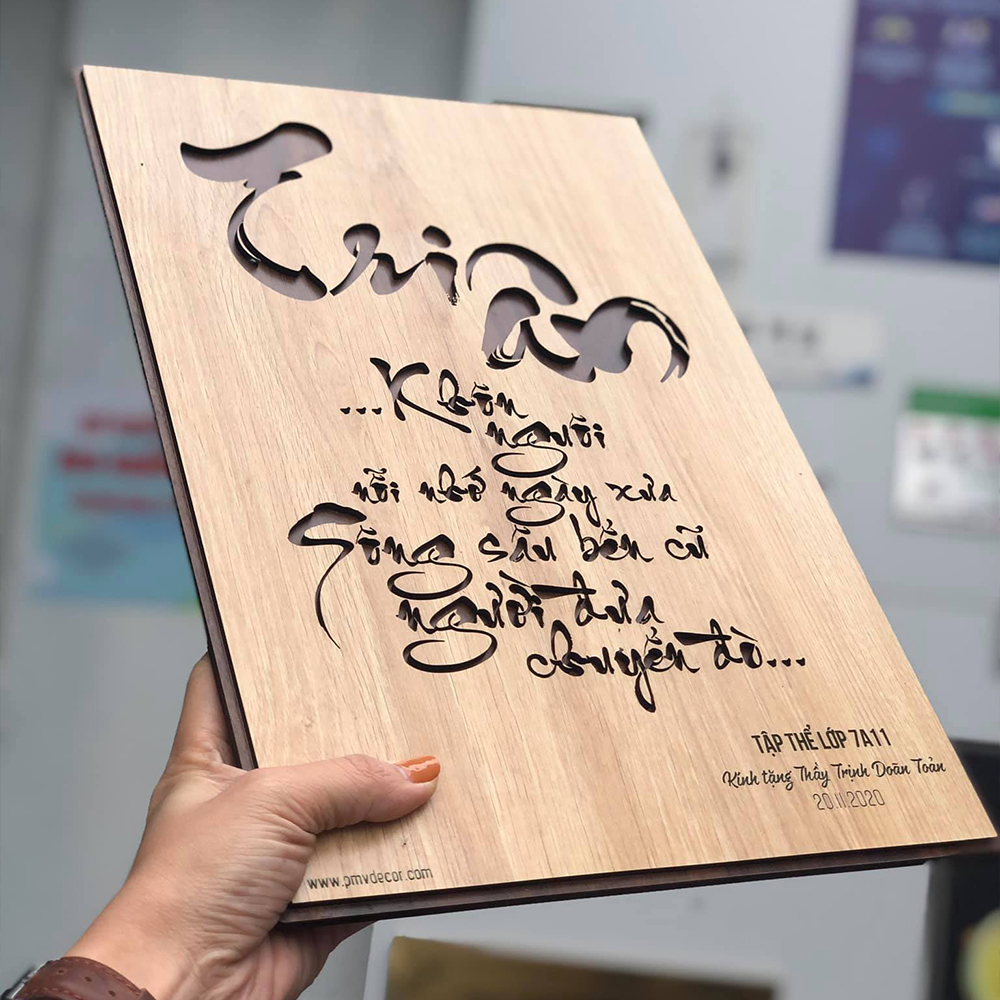 Tri ân
...Khôn
nguôi
nỗi nhớ ngày xưa
Sông sâu bến cũ
người đưa
chuyến đò...
TẬP THỂ LỚP 7A11
Kính tặng Thầy Trịnh Doãn Toản
20.11.2020
www.pmvdecor.com